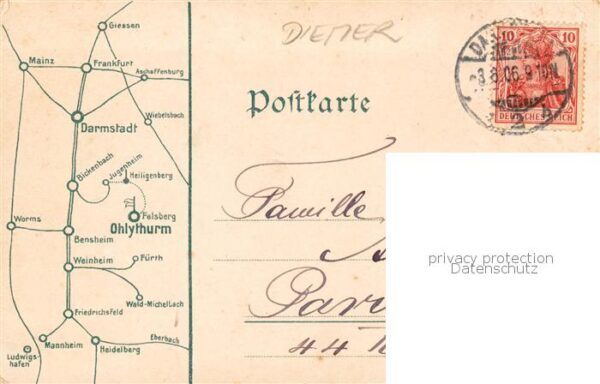 Giessen
Mainz
Frankfurt
Aschaffenburg
Darmstadt
Wiebelsbach
Bickenbach
Jugenheim
Heiligenberg
Felsberg
Ohlythurm
Worms
Bensheim
Weinheim
Fürth
Wald-Michelbach
Friedrichsfeld
Eberbach
Mannheim
Heidelberg
Ludwigs-
hafen
DIEMER
Postkarte
10 10
DEUTSCHES REICH
Famille
44
privacy protection
Datenschutz